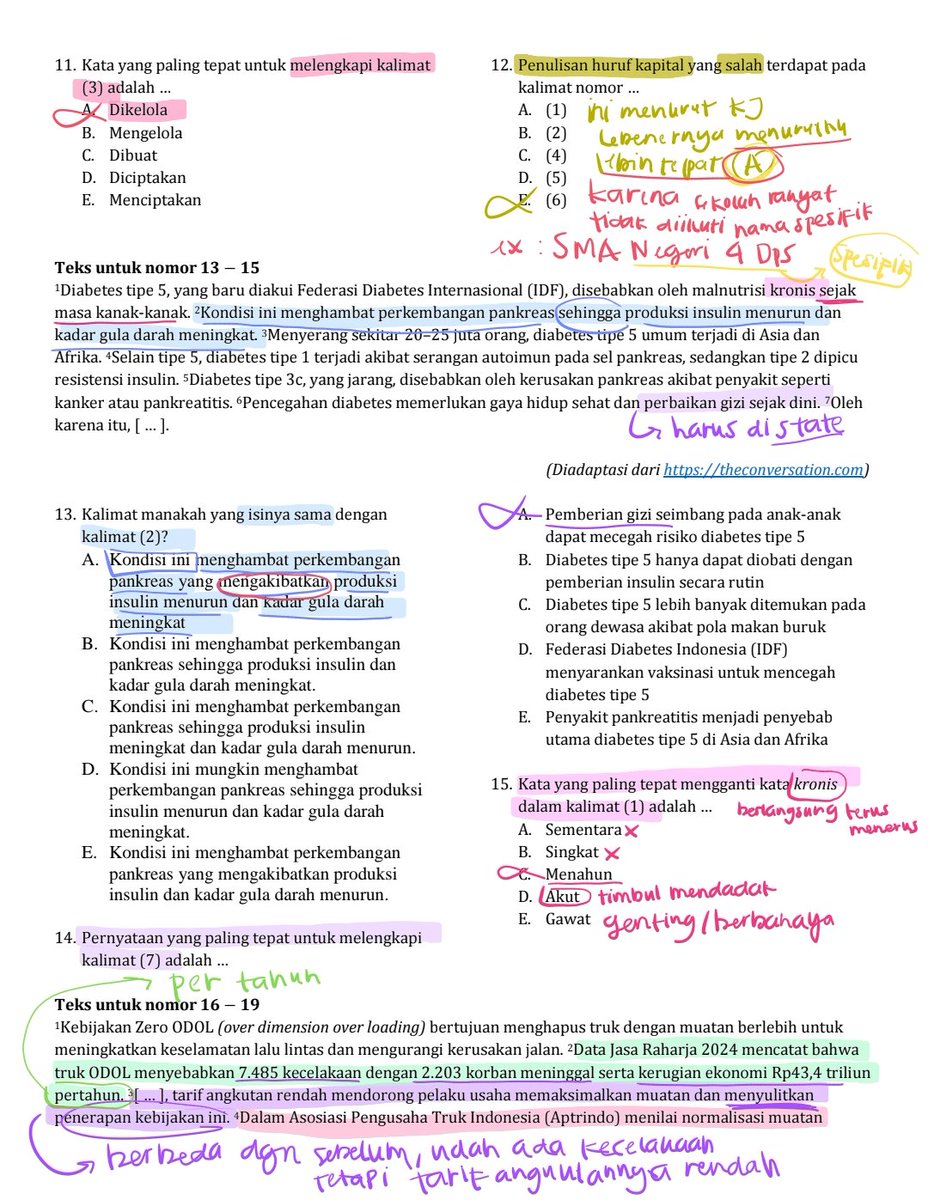 11. Kata yang paling tepat untuk melengkapi kalimat
(3) adalah ...
A. Dikelola
B. Mengelola
C. Dibuat
D. Diciptakan
E. Menciptakan
12. Penulisan huruf kapital yang salah terdapat pada
kalimat nomor ...
A. (1)
B. (2)
C. (4)
D. (5)
E. (6)
ini menurut KJ
sebenernya menurutku
lebih tepat (A)
karena sekolah rakyat
tidak diikuti nama spesifik
ex : SMA Negeri 4 Dps
spesifik
Teks untuk nomor 13 – 15
¹Diabetes tipe 5, yang baru diakui Federasi Diabetes Internasional (IDF), disebabkan oleh malnutrisi kronis sejak
masa kanak-kanak. ²Kondisi ini menghambat perkembangan pankreas sehingga produksi insulin menurun dan
kadar gula darah meningkat. ³Menyerang sekitar 20–25 juta orang, diabetes tipe 5 umum terjadi di Asia dan
Afrika. ⁴Selain tipe 5, diabetes tipe 1 terjadi akibat serangan autoimun pada sel pankreas, sedangkan tipe 2 dipicu
resistensi insulin. ⁵Diabetes tipe 3c, yang jarang, disebabkan oleh kerusakan pankreas akibat penyakit seperti
kanker atau pankreatitis. ⁶Pencegahan diabetes memerlukan gaya hidup sehat dan perbaikan gizi sejak dini. ⁷Oleh
karena itu, [ ... ].
harus di state
(Diadaptasi dari https://theconversation.com)
13. Kalimat manakah yang isinya sama dengan
kalimat (2)?
A. Kondisi ini menghambat perkembangan
pankreas yang mengakibatkan produksi
insulin menurun dan kadar gula darah
meningkat
B. Kondisi ini menghambat perkembangan
pankreas sehingga produksi insulin dan
kadar gula darah meningkat.
C. Kondisi ini menghambat perkembangan
pankreas sehingga produksi insulin
meningkat dan kadar gula darah menurun.
D. Kondisi ini mungkin menghambat
perkembangan pankreas sehingga produksi
insulin menurun dan kadar gula darah
meningkat.
E. Kondisi ini menghambat perkembangan
pankreas yang mengakibatkan produksi
insulin dan kadar gula darah menurun.
14. Pernyataan yang paling tepat untuk melengkapi
kalimat (7) adalah ...
A. Pemberian gizi seimbang pada anak-anak
dapat mecegah risiko diabetes tipe 5
B. Diabetes tipe 5 hanya dapat diobati dengan
pemberian insulin secara rutin
C. Diabetes tipe 5 lebih banyak ditemukan pada
orang dewasa akibat pola makan buruk
D. Federasi Diabetes Indonesia (IDF)
menyarankan vaksinasi untuk mencegah
diabetes tipe 5
E. Penyakit pankreatitis menjadi penyebab
utama diabetes tipe 5 di Asia dan Afrika
15. Kata yang paling tepat mengganti kata kronis
dalam kalimat (1) adalah ...
berlangsung terus
menerus
A. Sementara
B. Singkat
C. Menahun
D. Akut timbul mendadak
E. Gawat genting/berbahaya
per tahun
Teks untuk nomor 16 – 19
¹Kebijakan Zero ODOL (over dimension over loading) bertujuan menghapus truk dengan muatan berlebih untuk
meningkatkan keselamatan lalu lintas dan mengurangi kerusakan jalan. ²Data Jasa Raharja 2024 mencatat bahwa
truk ODOL menyebabkan 7.485 kecelakaan dengan 2.203 korban meninggal serta kerugian ekonomi Rp43,4 triliun
pertahun. ³[ ... ], tarif angkutan rendah mendorong pelaku usaha memaksimalkan muatan dan menyulitkan
penerapan kebijakan ini. ⁴Dalam Asosiasi Pengusaha Truk Indonesia (Aptrindo) menilai normalisasi muatan
berbeda dgn sebelum, udah ada kecelakaan
tetapi tarif angkutannya rendah